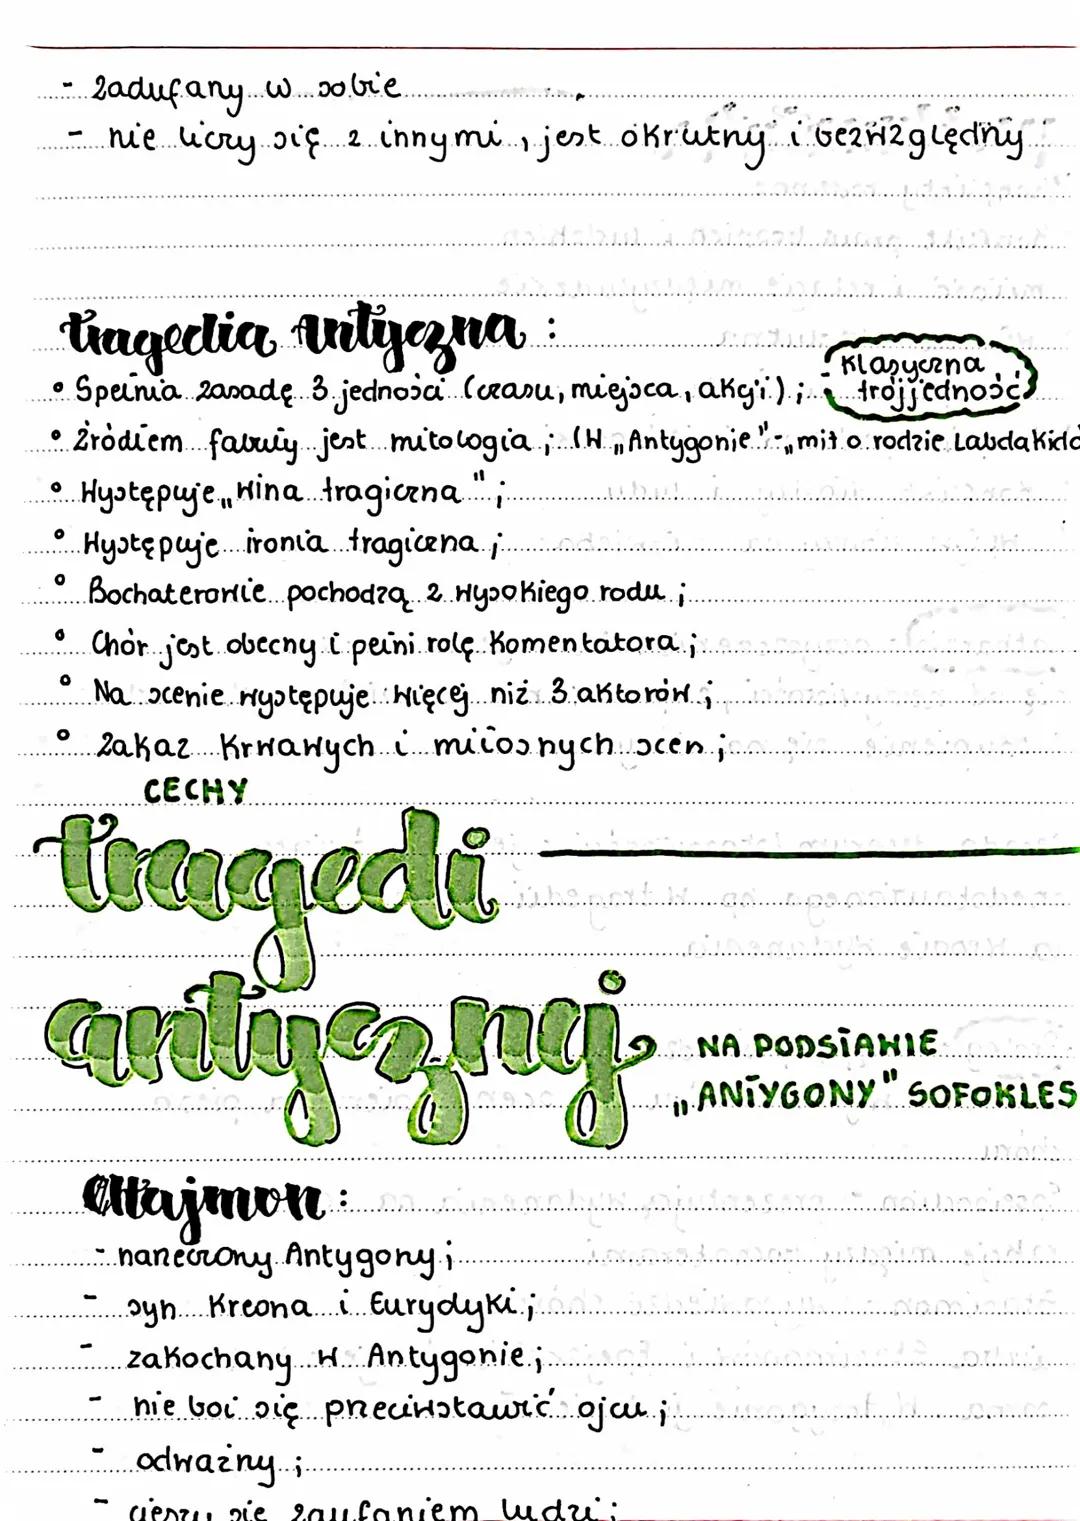 - zadufany w sobie
- nie liczy się z innymi, jest okrutny i bezwzględny
tragedia antyczna :
• Spełnia zasadę 3 jedności (czasu, miejsca, akcji);
- klasyczna
trójjedność
• Źródłem fabuły jest mitologia; (W „Antygonie"-„mit o rodzie Labdakidó
• Występuje „wina tragiczna";
• Występuje ironia tragiczna;
• Bochaterowie pochodzą z wysokiego rodu;
• Chór jest obecny i pełni rolę komentatora;
• Na scenie występuje więcej niż 3 aktorów;
• Zakaz krwawych i miłosnych scen;
CECHY
tragedi
antycznej
NA PODSTAWIE
„ANTYGONY" SOFOKLES
Hajmon:
- narzeczony Antygony;
- syn Kreona i Eurydyki;
- zakochany w Antygonie;
- nie boi się przeciwstawić ojcu;
- odważny;
- cieszy się zaufaniem ludzi;